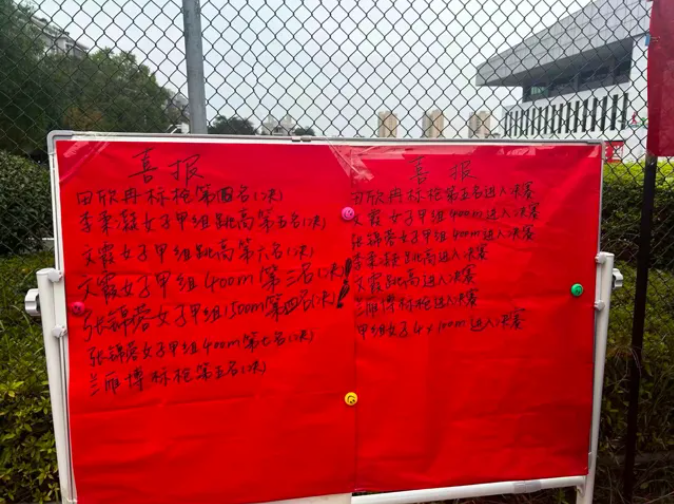 喜报
田欣冉标枪第四名(决)
李柔凝女子甲组跳高第五名(决)
文霞女子甲组跳高第六名(决)
文霞女子甲组400m第三名(决)!
张锦蓉女子甲组1500m第四名(决)!
张锦蓉女子甲组400m第七名(决)
兰雁博标枪第五名(决)
喜报
田欣冉标枪第五名进入决赛
文霞女子甲组400m进入决赛
张锦蓉女子甲组400m进入决赛
李柔凝跳高进入决赛
文霞跳高进入决赛
兰雁博标枪进入决赛
甲组女子4×100m进入决赛